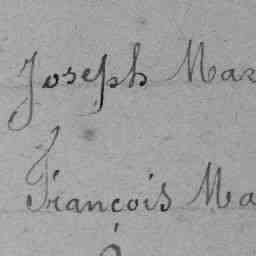 Joseph Mar
François Ma